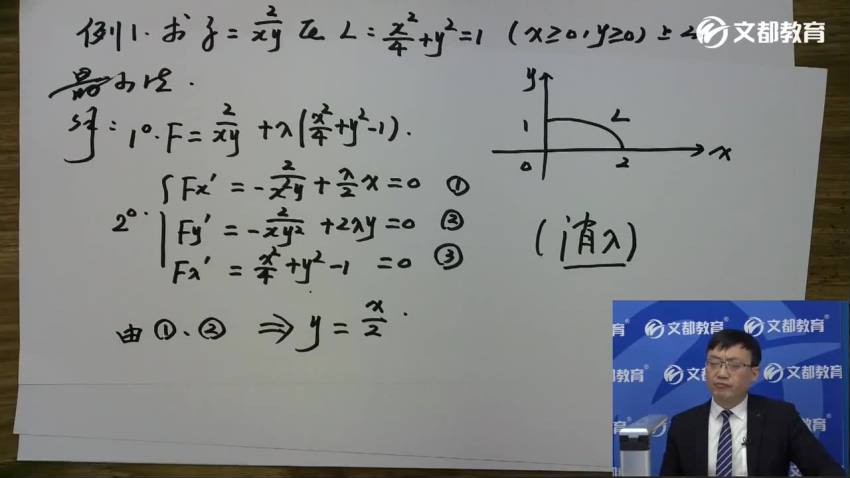 例1. 求 z = 2/xy 在 L = x²/4 + y² = 1 (x≥0, y≥0) 上
最小值.
解: 1°. F = 2/xy + λ(x²/4 + y² - 1).
2°. Fx' = -2/x²y + λ/2 x = 0 ①
Fy' = -2/xy² + 2λy = 0 ②
Fλ' = x²/4 + y² - 1 = 0 ③
由 ①、② ⇒ y = x/2.
y
1
L
0
2
x
(消λ)
文都教育
文都教育
文都教育
教育
文都教育
文都教育